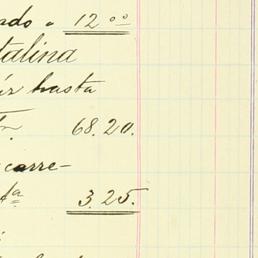 ado a 12 00
talina
ir hasta
68.20.
carre-
fa 3.25.